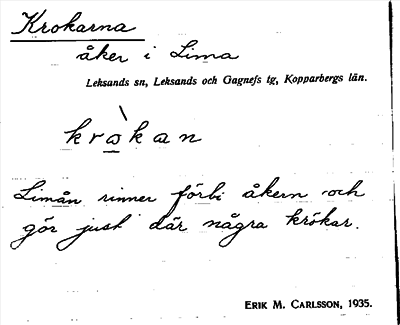 Krokarna
åker i Lima
Leksands sn, Leksands och Gagnefs tg, Kopparbergs län.
krɷ̀kan
Limån rinner förbi åkern och
gör just där några krökar.
ERIK M. CARLSSON, 1935.